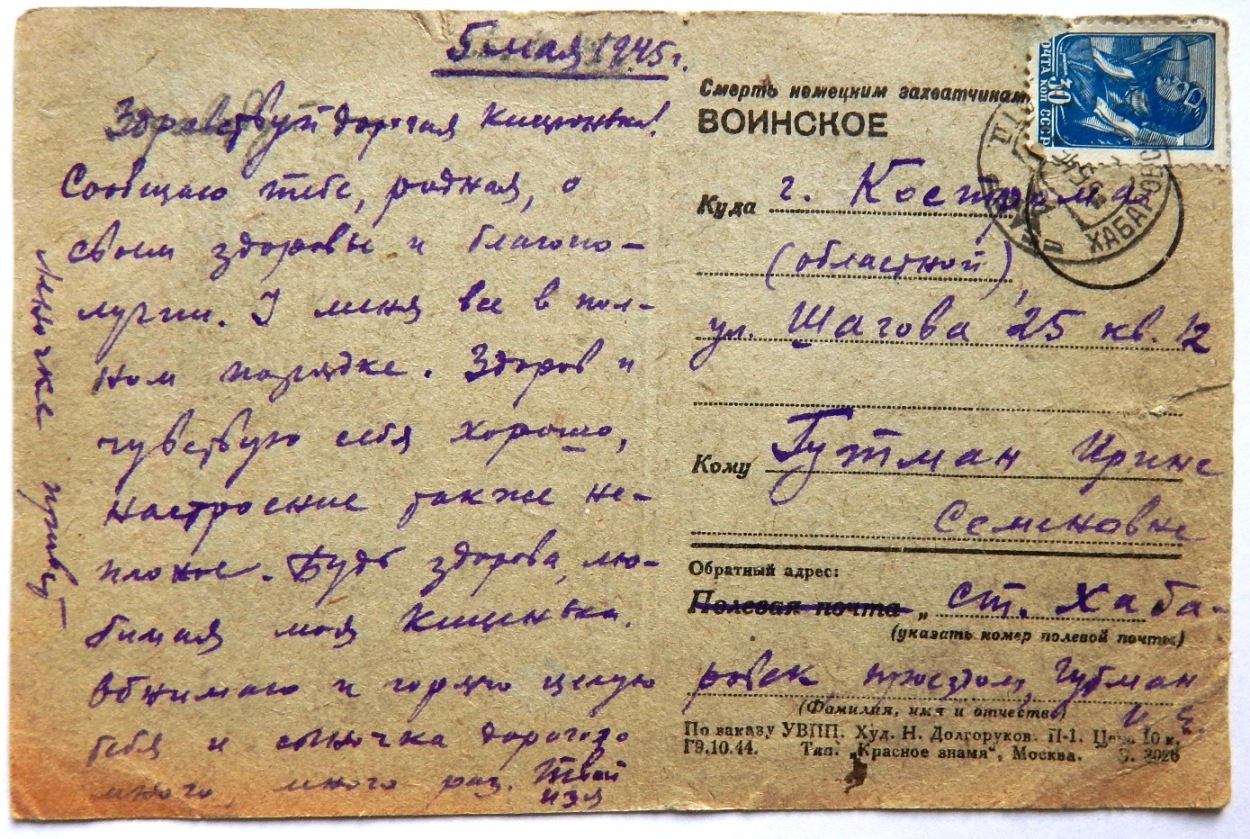 5 мая 1945 г.
Здравствуй дорогая Кищенька!
Сообщаю тебе, родная, о
своем здоровье и благопо-
лучии. У меня все в пол-
ном порядке. Здоров и
чувствую себя хорошо,
настроение также не-
плохое. Будь здорова, лю-
бимая моя Кищенька.
Обнимаю и горячо целую
тебя и сыночка дорогого
много, много раз. Твой
Изя
привет
Смерть немецким захватчикам
ВОИНСКОЕ
Куда г. Кострома
(областной),
ул. Шагова 25 кв. 12
Кому Гутман Ирине
Семеновне
Обратный адрес:
Полевая почта „ ст. Хаба-
(указать номер полевой почты)
ровск проездом, Гутман
(Фамилия, имя и отчество)
По заказу УВПП. Худ. Н. Долгоруков. П-1. Цена 10 к.
Г9.10.44. Тип. „Красное знамя“, Москва. З. 3026
ПОЧТА 30 КОП СССР
ХАБАРОВСК